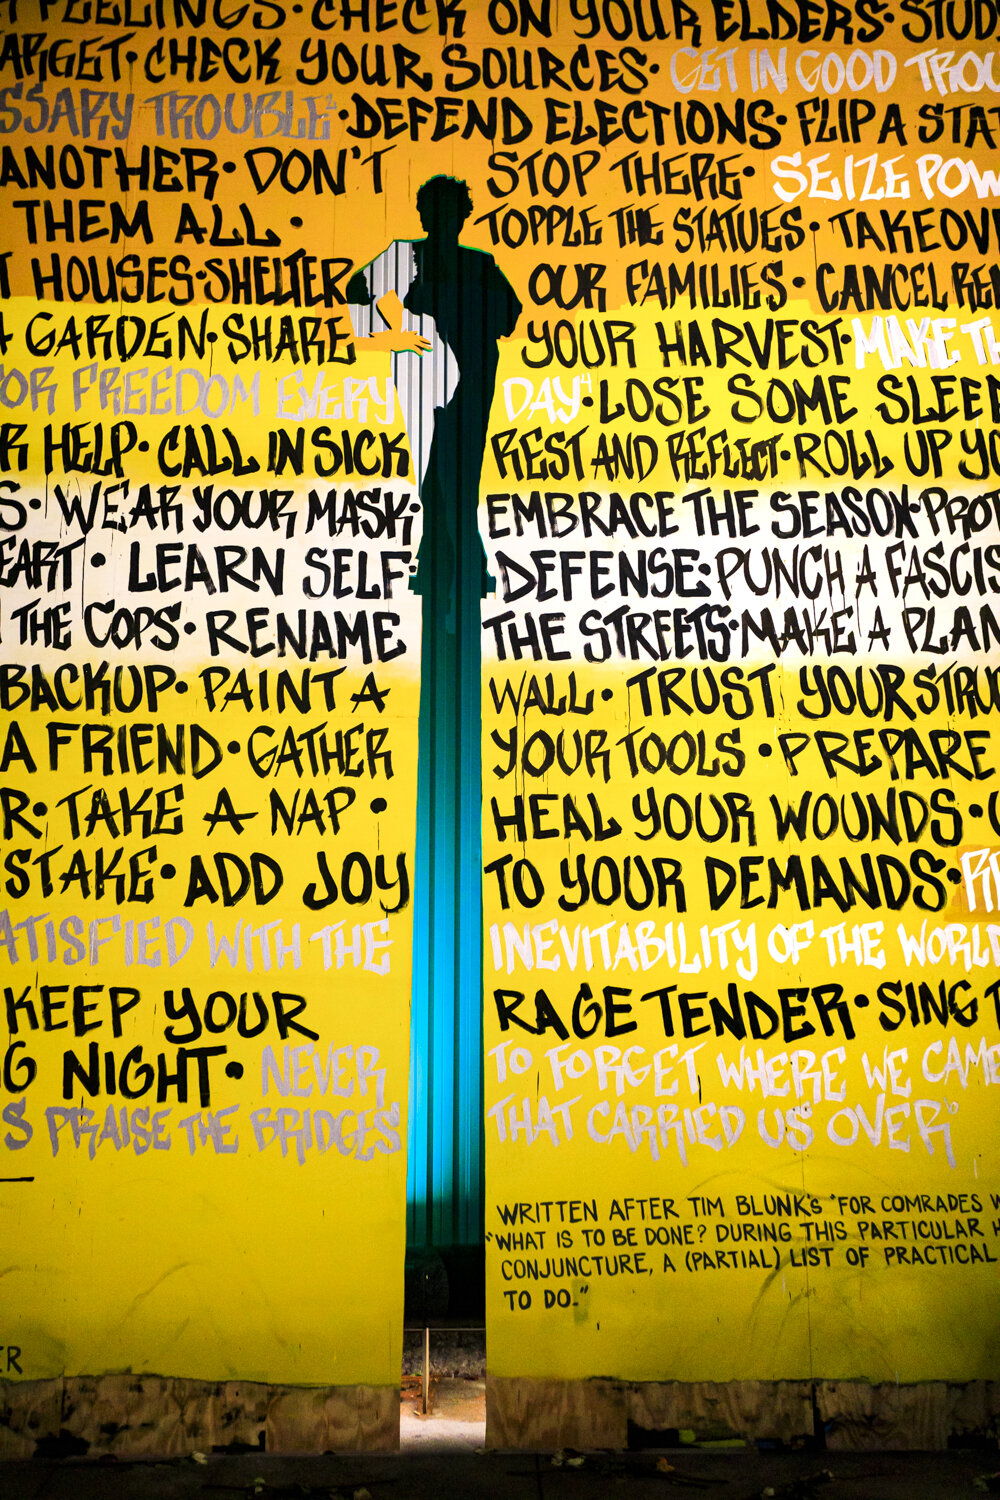 FEELINGS · CHECK ON YOUR ELDERS · STUD
ARGET · CHECK YOUR SOURCES · GET IN GOOD TROU
SSARY TROUBLE² · DEFEND ELECTIONS · FLIP A STAT
ANOTHER · DON'T STOP THERE · SEIZE POW
THEM ALL · TOPPLE THE STATUES · TAKEOV
T HOUSES · SHELTER OUR FAMILIES · CANCEL REN
A GARDEN · SHARE YOUR HARVEST · MAKE TH
FOR FREEDOM EVERY DAY⁴ · LOSE SOME SLEEP
R HELP · CALL IN SICK REST AND REFLECT · ROLL UP YO
S · WEAR YOUR MASK · EMBRACE THE SEASON · PROT
EART · LEARN SELF DEFENSE · PUNCH A FASCIS
THE COPS · RENAME THE STREETS · MAKE A PLAN
BACKUP · PAINT A WALL · TRUST YOUR STRU
A FRIEND · GATHER YOUR TOOLS · PREPARE
R · TAKE A NAP · HEAL YOUR WOUNDS ·
STAKE · ADD JOY TO YOUR DEMANDS · RE
ATISFIED WITH THE INEVITABILITY OF THE WORLD
KEEP YOUR RAGE TENDER · SING T
G NIGHT · NEVER TO FORGET WHERE WE CAME
S PRAISE THE BRIDGES THAT CARRIED US OVER⁶
WRITTEN AFTER TIM BLUNK'S "FOR COMRADES W
"WHAT IS TO BE DONE? DURING THIS PARTICULAR H
CONJUNCTURE, A (PARTIAL) LIST OF PRACTICAL
TO DO."
ER